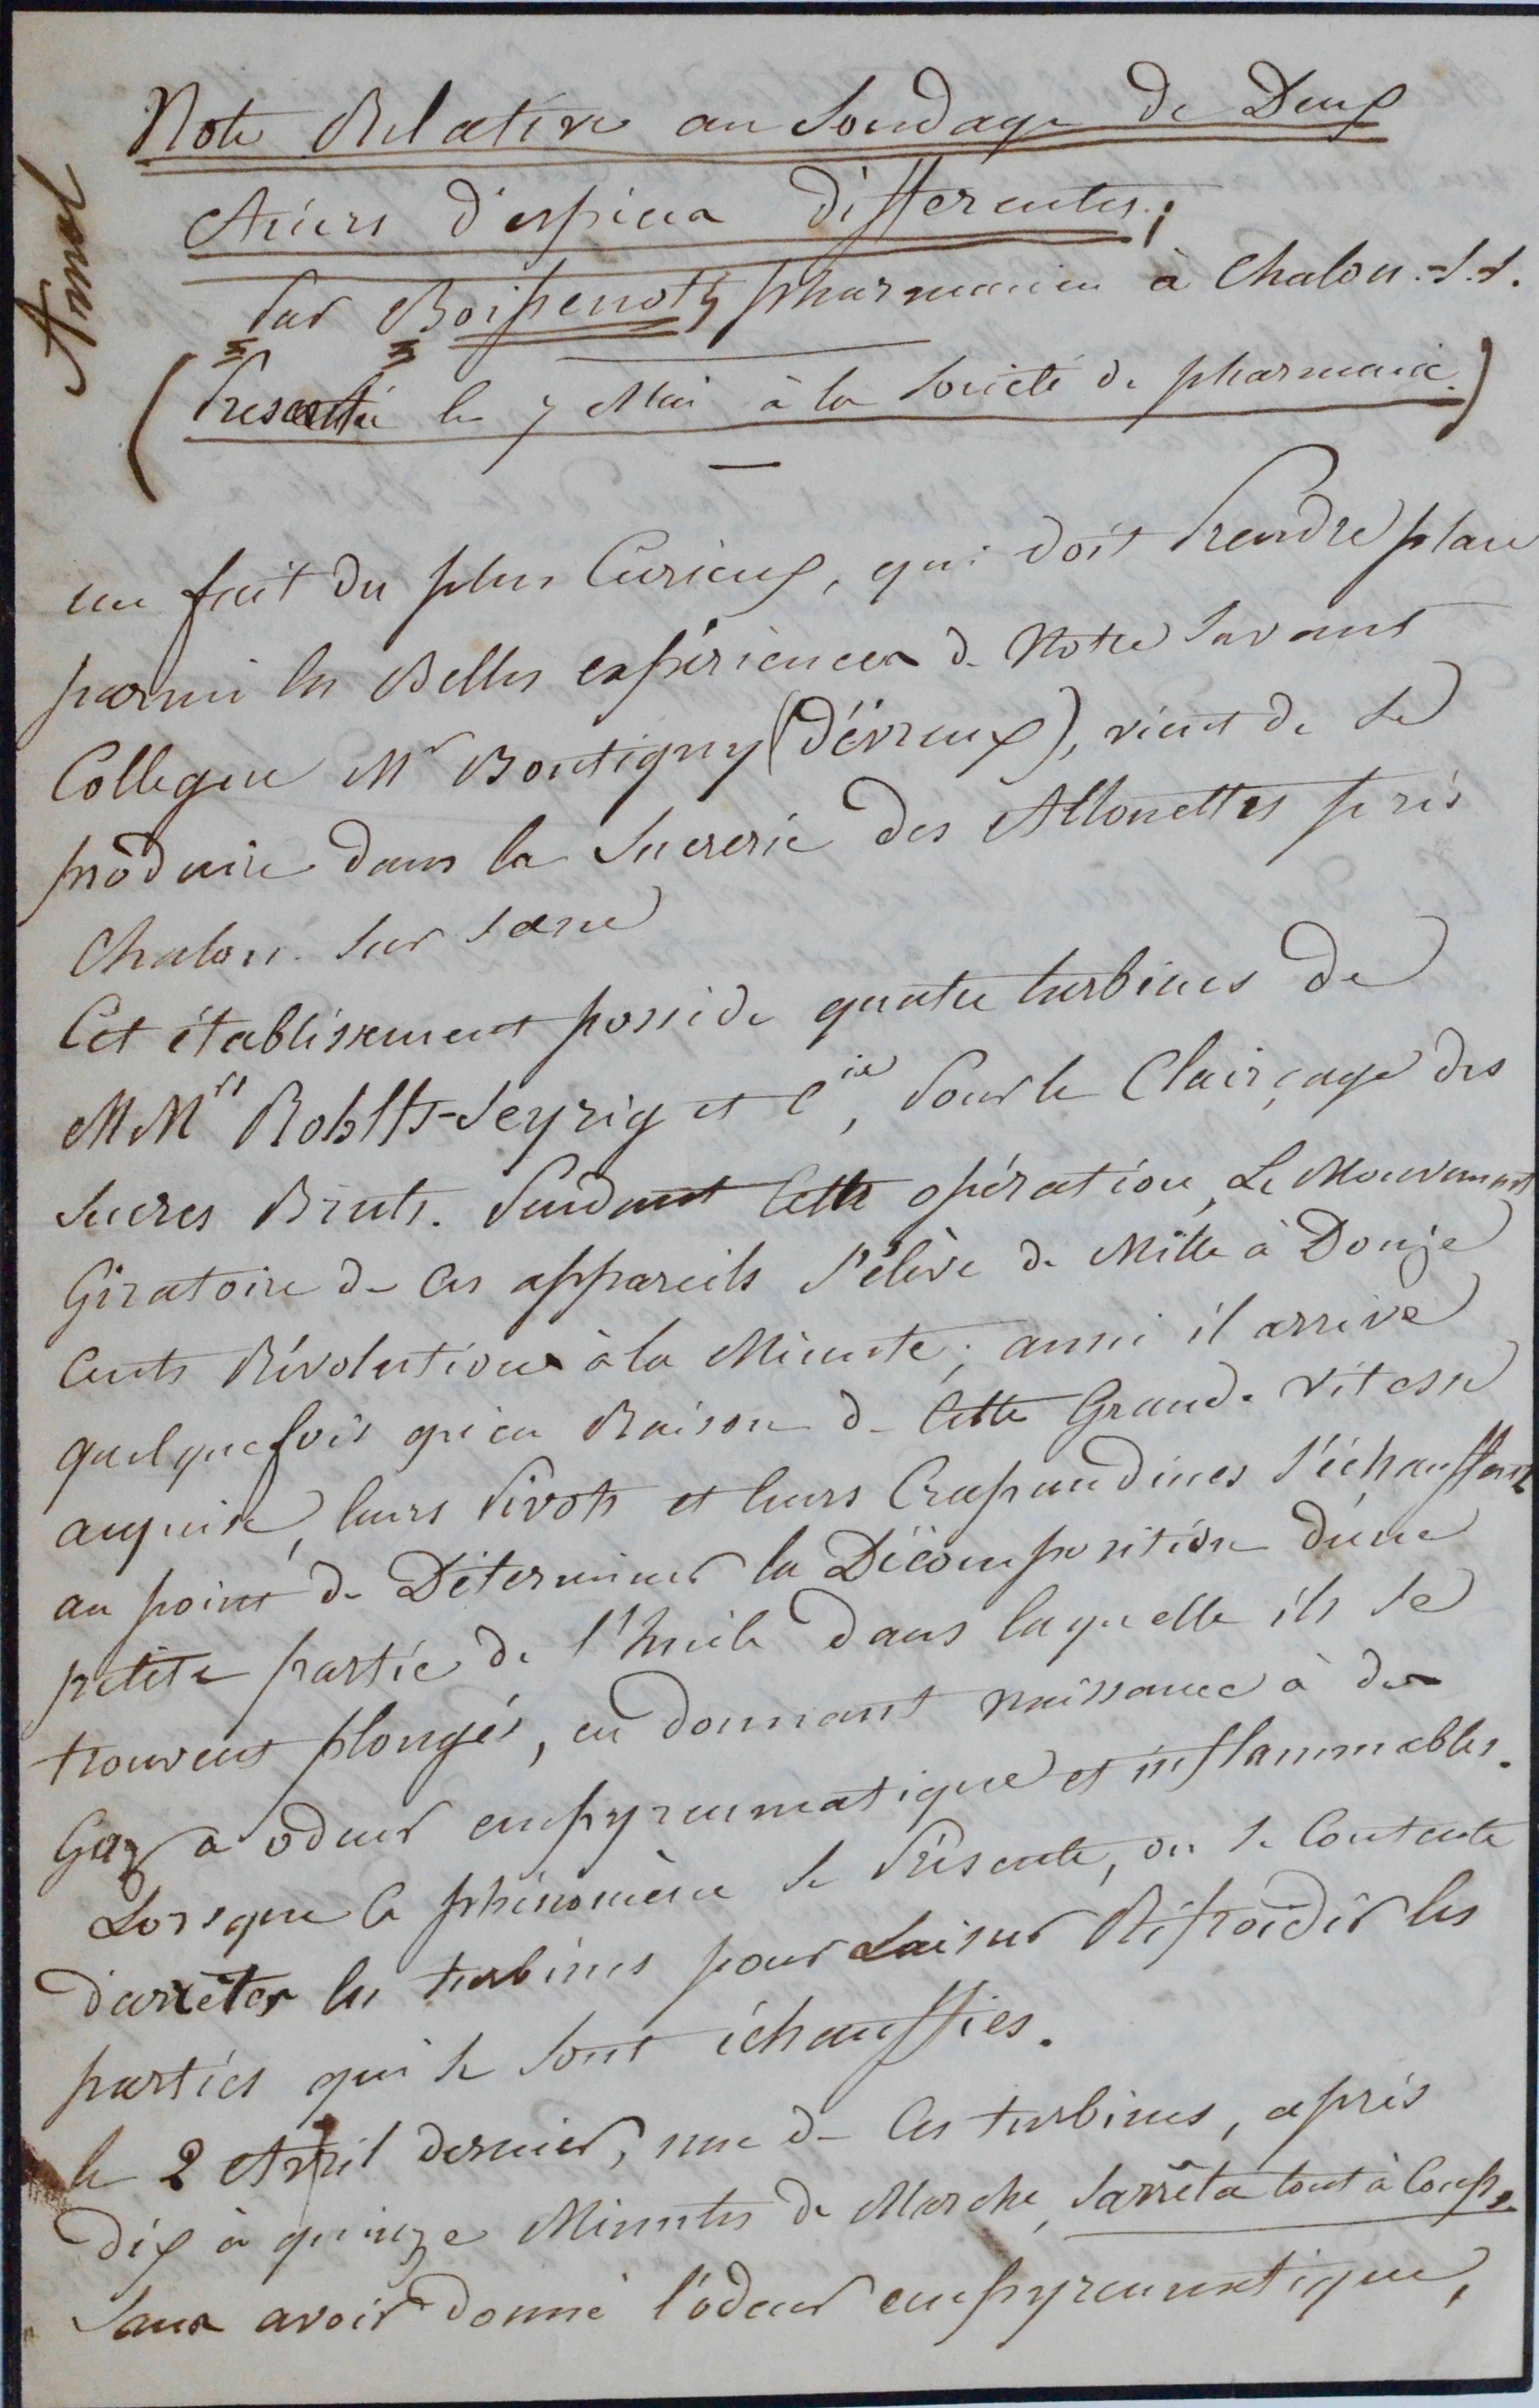 Note Relative au Soudage de Deux
Aciers d'espèces differentes;
Par Boissenot, pharmacien à Chalon-s.-s.
(Presentée le 7 Mai à la Société de pharmacie.)
un fait du plus Curieux, qui doit Prendre place
parmi les Belles expériences de Notre Savant
Collegue Mr Boutigny (d'évreux), vient de se
produire dans la Sucrerie des Allouettes près
Chalon-sur Saone
Cet établissement possède quatre turbines de
MMrs Rohlfs-Seyrig et Cie, Pour le Clairçage des
Sucres Bruts. Pendant Cette opération, Le Mouvement
Giratoire de Ces appareils s'élève de Mille à Douze
Cents Révolutions à la Minute; aussi il arrive
quelquefois qu'en Raison de Cette Grande vitesse
acquise, leurs Pivots et leurs Crapaudines s'échauffent
au point de Déterminer la Décomposition d'une
petite partie de l'huile dans laquelle ils se
trouvent plongés, en donnant naissance à des
Gaz a odeur empyreumatique et inflammables.
Lorsque Ce phénomène se Présente, on se Contente
d'arrêter les turbines pour Laisser Réfroidir les
parties qui se sont échauffées.
le 2 Avril dernier, une de Ces turbines, après
dix à quinze Minutes de Marche, s'arrêta tout à Coup,
Sans avoir donné l'odeur empyreumatique,